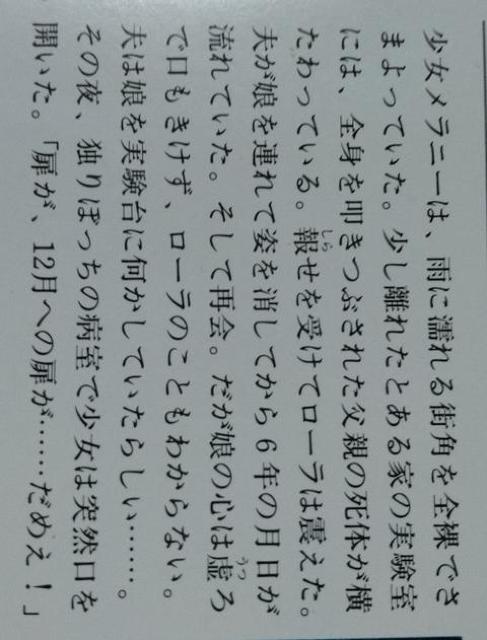 少女メラニーは、雨に濡れる街角を全裸でさ
まよっていた。少し離れたとある家の実験室
には、全身を叩きつぶされた父親の死体が横
たわっている。報せを受けてローラは震えた。
夫が娘を連れて姿を消してから6年の月日が
流れていた。そして再会。だが娘の心は虚ろ
で口もきけず、ローラのこともわからない。
夫は娘を実験台に何かしていたらしい……。
その夜、独りぼっちの病室で少女は突然口を
開いた。「扉が、12月への扉が……だめぇ！」